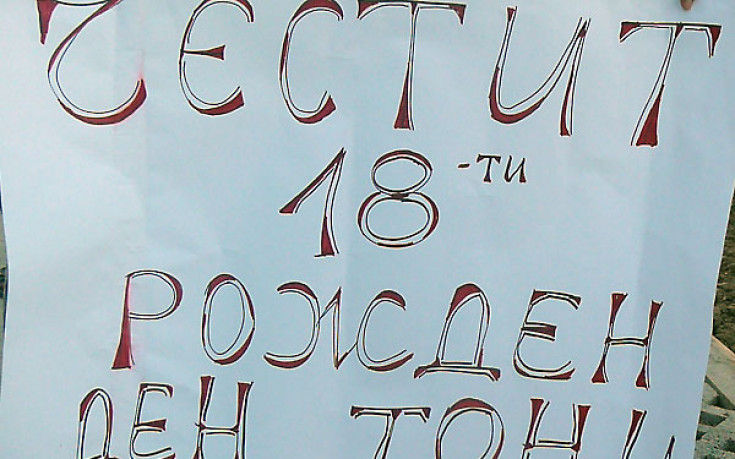 ЧЕСТИТ
18-ти
РОЖДЕН
ДЕН ТОНИ